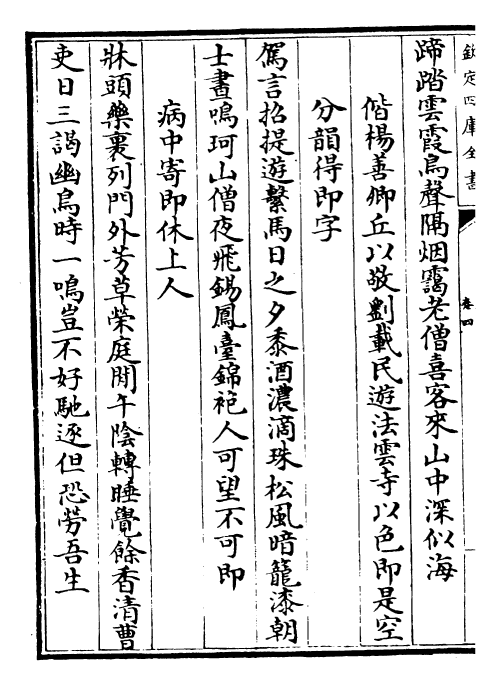 欽定四庫全書
卷四
蹄踏雲霞鳥聲隔烟靄老僧喜客來山中深似海
偕楊善卿丘以敬劉載民遊法雲寺以色即是空
分韻得即字
駕言招提遊繫馬日之夕黍酒濃滴珠松風暗籠漆朝
士晝鳴珂山僧夜飛錫鳳臺錦袍人可望不可即
病中寄即休上人
牀頭藥裹列門外芳草榮庭閒午陰轉睡覺餘香清曹
吏日三謁幽鳥時一鳴豈不好馳逐但恐勞吾生